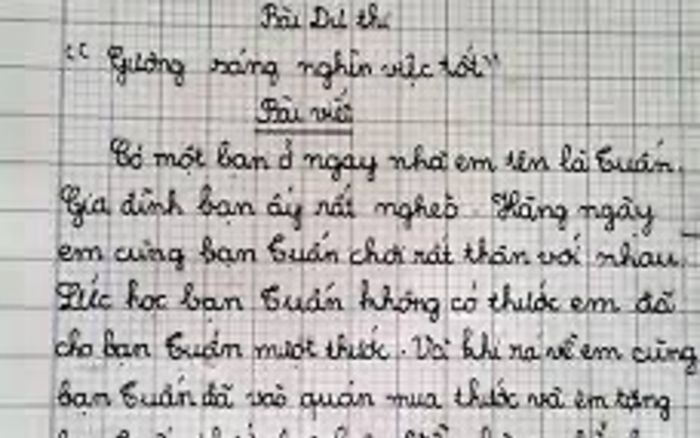 Bài Dự thi
“ Gương sáng nghìn việc tốt”
Bài viết
Có một bạn ở ngay nhà em tên là Tuấn.
Gia đình bạn ấy rất nghèo. Hằng ngày
em cùng bạn Tuấn chơi rất thân với nhau.
Lúc học bạn Tuấn không có thước em đã
cho bạn Tuấn mượt thước. Và khi ra về em cùng
bạn Tuấn đã vào quán mua thước và em tặng